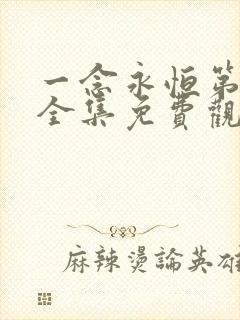 一念永恒第
全集免費觀
麻辣燙論英雄